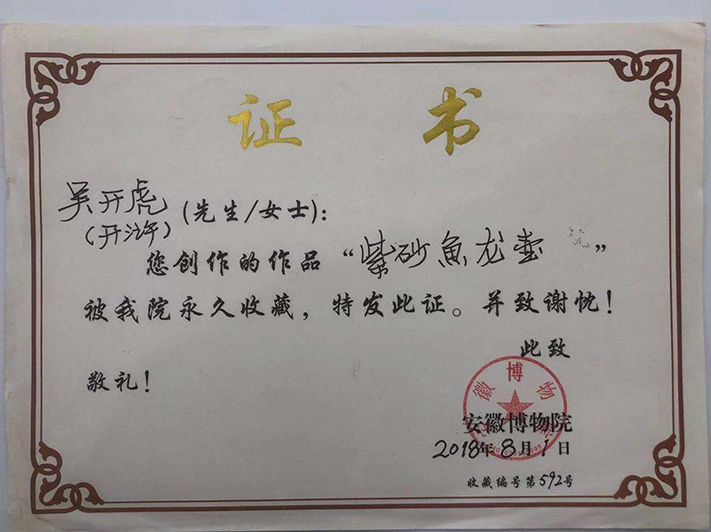 证 书
吴开虎 (先生/女士):
(开浒)
您创作的作品“紫砂魚龙壶”
被我院永久收藏，特发此证。并致谢忱！
此致
敬礼！
徽博物
安徽博物院
2018年8月1日
收藏编号第592号